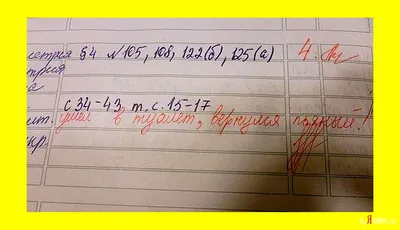 метрия §4 №105, 108, 122(б), 125(а) 4.
трия
а
с 34-43 т.с. 15-17
ушел в туалет, вернулся пьяный!